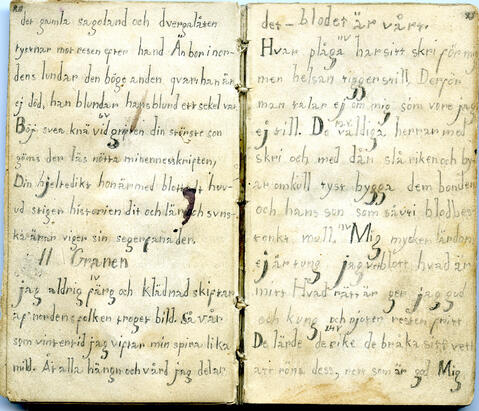 det gamla sagoland och dvergalåten
tystnar mot resen efter hand Än bor i nor-
dens lundar den höge anden qvar han är
ej död, han blundar hans blund ett sekel var
Böj svea knä vid griften din störste son
göms der läs nötta minnesskriften,
Din hjeltedikt hon är med blottadt huv-
ud stiger historien dit och
sin segerfana der.
11 Granen
jag aldrig färg och klädnad skiftar
af nordens folken troget bild. Så vår
som vintertid jag viftar min spira lika
mild. Åt alla hägn och vård jag delar
det – blodet är vårt.
Hvar plåga har sitt skri för sig
men helsan tigger still. Derför
man talar ej om mig som vore jag
ej till. De väldiga herrar med
skri och med dån slå riken och by
ar omkull tyst bygga dem bonden
och hans son som så uti blodbes-
tenkt mull. Mig mycken lärdom
ej är tung jag vet blott hvad är
mitt Hvad rätt är ger jag god
och kung och njuter resten fritt
De lärde de rike de bråka sitt vett
att röna dess, rett som är god Mig